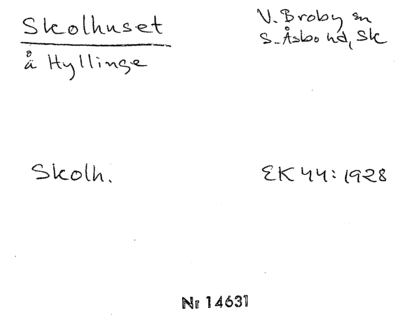 Skolhuset
å Hyllinge
V. Broby sn
S. Åsbo hd, Sk
Skolh.
EK 44:1928
Nr 14631